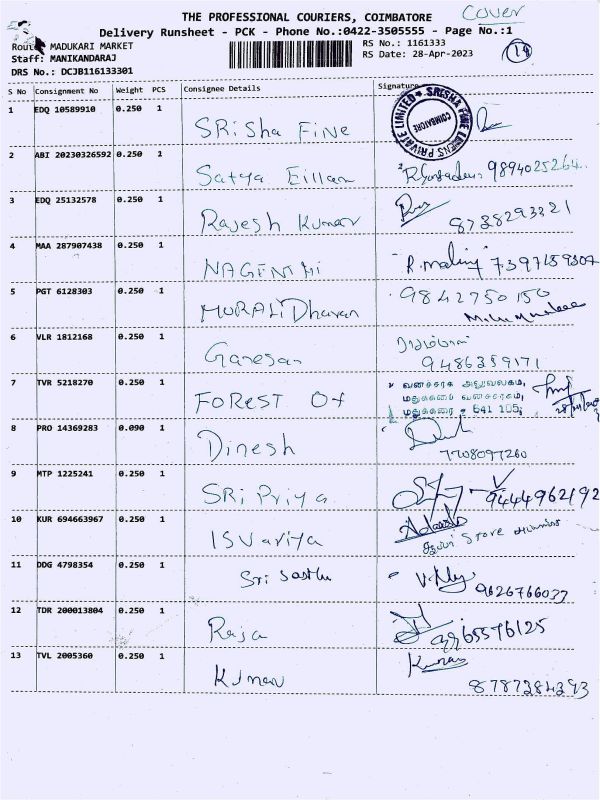 THE PROFESSIONAL COURIERS, COIMBATORE Cover
Delivery Runsheet - PCK - Phone No.:0422-3505555 - Page No.:1
Route MADUKARI MARKET RS No.: 1161333
Staff: MANIKANDARAJ RS Date: 28-Apr-2023
DRS No.: DCJB116133301
S No Consignment No Weight PCS Consignee Details Signature
1 EDQ 10589910 0.250 1 SRisha Fine
COIMBATORE
2 ABI 20230326592 0.250 1 Satya Eillan 9894025264
3 EDQ 25132578 0.250 1 Rajesh Kumar 8738293321
4 MAA 287907438 0.250 1 NAGENTHI R.malinj 7397159807
5 PGT 6128303 0.250 1 MURALI Dharan 9842750150
6 VLR 1812168 0.250 1 Ganesan 9486359171
7 TVR 5218270 0.250 1 FOREST Of வனச்சரக அலுவலகம்,
மதுக்கரை வனச்சரகம்,
மதுக்கரை - 641 105.
8 PRO 14369283 0.090 1 Dinesh 7708097260
9 MTP 1225241 0.250 1 SRi Priya 9444962192
10 KUR 694663967 0.250 1 ISVariya Store
11 DDG 4798354 0.250 1 Sri Sasthu 9626766037
12 TDR 200013804 0.250 1 Raja 9965576125
13 TVL 2005360 0.250 1 Kumar Kumar
8787284293